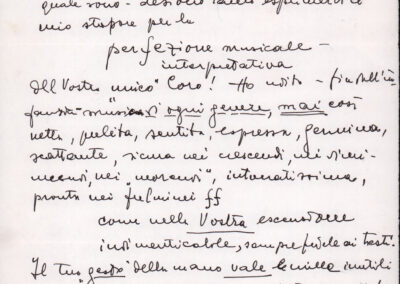 quale sono - desidero
mio stupore per la
perfezione musicale -
interpretativa
del Vostro "unico" Coro! - Ho udito - fin dall'in-
fanzia - musica di ogni genere, mai così
netta, pulita, sentita, espressa, genuina,
scattante, sicura nei crescendi, nei dimi-
nuendi, nei "morendi", intonatissima,
pronta nei "fulminei ff
come nella Vostra esecuzione
indimenticabile, sempre fedele ai testi.
Il tuo "gesto" della mano vale le mille inutili